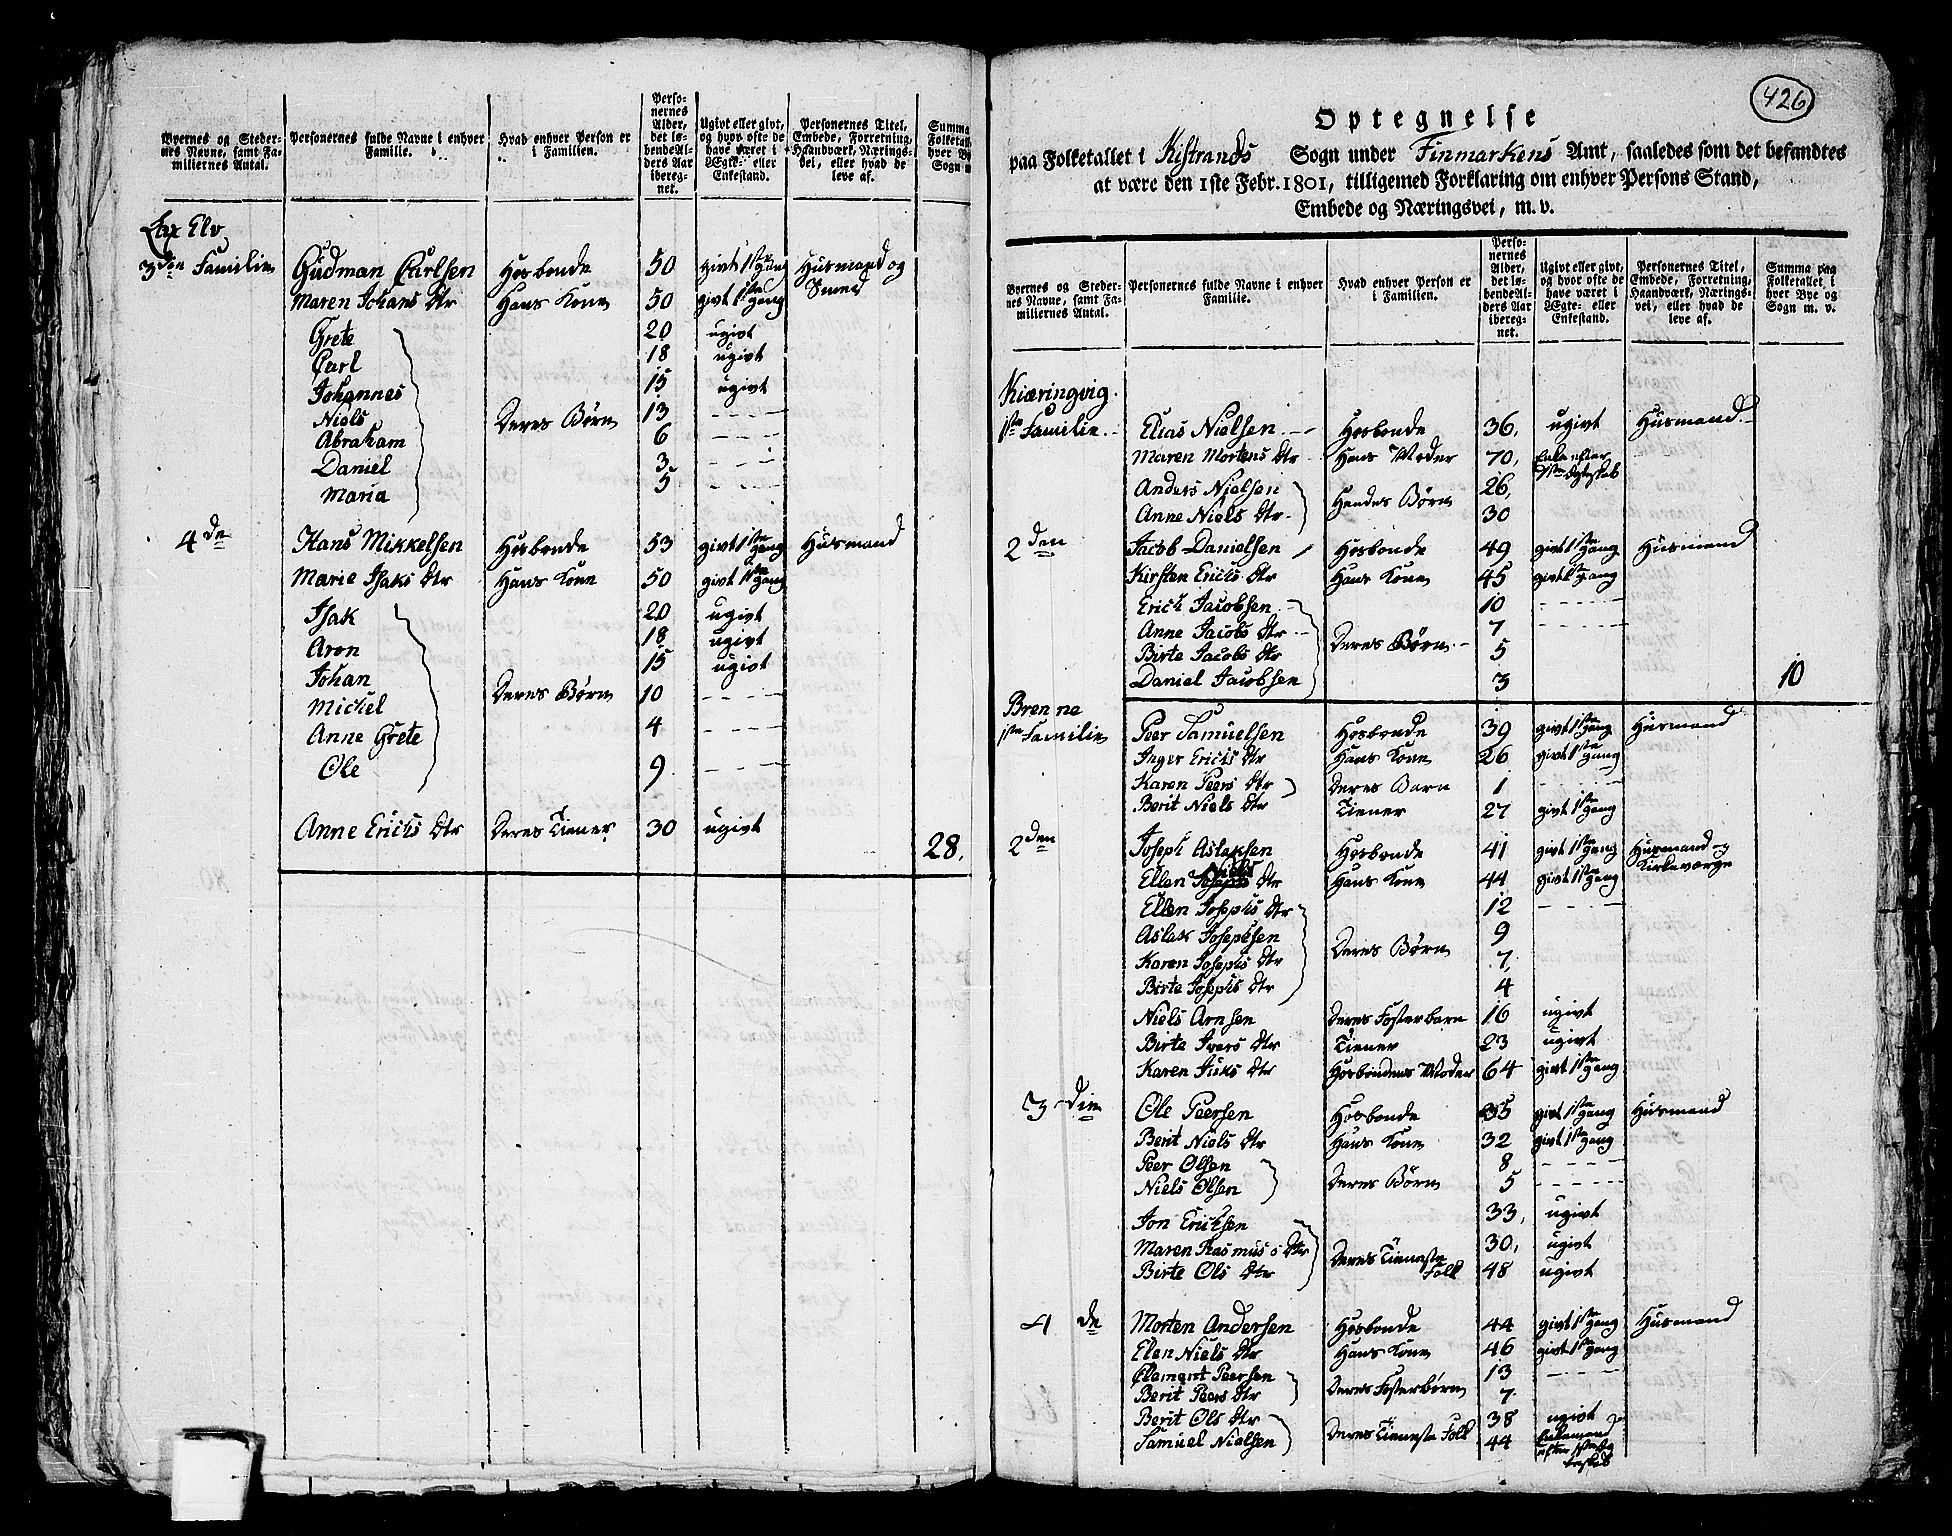 Byernes og Steder-
nes Navne, samt Fa-
miliernes Antal.
Personernes fulde Navne i enhver
Familie.
Hvad enhver Person er
i Familien.
Perso-
nernes
Alder,
det lø-
bende Al-
ders Aar
ibereg-
net.
Ugivt eller givt,
og hvor ofte de
have været i
Ægte- eller
Enkestand.
Personernes Titel,
Embede, Forretning,
Haandværk, Nærings-
vei, eller hvad de
leve af.
Summa
Folketall
hver By
Sogn m
Lax Elv
3die Familie Gudman Carlsen Hosbonde 50 givt 1ste gang Husmand og
Smed
Maren Johans Dtr Hans Kone 50 givt 1ste gang
Grete 20 ugivt
Carl 18 ugivt
Johannes 15 ugivt
Niels Deres Børn 13 - - -
Abraham 6 - - -
Daniel 3 - - -
Maria 5 - - -
4de Hans Mikkelsen Hosbonde 53 givt 1ste gang Husmand
Marie Isaks Dtr Hans Kone 50 givt 1ste gang
Isak 20 ugivt
Aron 18 ugivt
Johan 15 ugivt
Michel Deres Børn 10 - - -
Anne Grete 4 - - -
Ole 9 - - -
Anne Erichs Dtr Deres Tiener 30 ugivt
28.
426
Optegnelse
paa Folketallet i Kistrands Sogn under Finmarkens Amt, saaledes som det befandtes
at være den 1ste Febr. 1801, tilligemed Forklaring om enhver Persons Stand,
Embede og Næringsvei, m. v.
Byernes og Steder-
nes Navne, samt Fa-
miliernes Antal.
Personernes fulde Navne i enhver
Familie.
Hvad enhver Person er
i Familien.
Perso-
nernes
Alder,
det lø-
bende Al-
ders Aar
ibereg-
net.
Ugivt eller givt,
og hvor ofte de
have været i
Ægte- eller
Enkestand.
Personernes Titel,
Embede, Forretning,
Haandværk, Nærings-
vei, eller hvad de
leve af.
Summa paa
Folketallet i
hver Bye og
Sogn m. v.
Kiæringvig.
1ste Familie Elias Nielsen Hosbonde 36, ugivt Husmand
Maren Mortens Dtr Hans Moder 70, Enke efter
1ste Ægteskab
Anders Nielsen Hendes Børn 26,
Anne Niels Dtr 30
2den Jacob Danielsen Hosbonde 49 givt 1ste gang Husmand
Kirsten Erichs Dtr Hans Kone 45 givt 1ste gang
Erich Jacobsen 10 - - -
Anne Jacobs Dtr 7
Birte Jacobs Dtr Deres Børn 5
Daniel Jacobsen 3
10
Brenne
1ste Familie Peer Samuelsen Hosbonde 39 givt 1ste gang Husmand
Inger Erichs Dtr Hans Kone 26 givt 1ste gang
Karen Peers Dtr Deres Barn 1 - - -
Berit Niels Dtr Tiener 27 givt 1ste gang
2den Joseph Aslaksen Hosbonde 41 givt 1ste gang Husmand og
Kirkeværge
Ellen Josephs Dtr Hans Kone 44 givt 1ste gang
Ellen Josephs Dtr 12 - - -
Aslak Josephsen 9
Karen Josephs Dtr Deres Børn 7,
Birte Josephs Dtr 4
Niels Arnsen Deres Fosterbarn 16 ugivt
Birte Ivers Dtr Tiener 23 ugivt
Karen Dtr Hosbondens Moder 64 givt 1ste gang
3die Ole Peersen Hosbonde 35 givt 1ste gang Husmand
Berit Niels Dtr Hans Kone 32 givt 1ste gang
Peer Olsen 8 - - -
Niels Olsen Deres Børn 5 - - -
Jon Erichsen 33, ugivt
Maren Rasmus's Dtr Deres Tieneste 30, ugivt
Birte Ols Dtr Folk 48 ugivt
4de Morten Andersen Hosbonde 44 givt 1ste gang Husmand
Elen Niels Dtr Hans Kone 46 givt 1ste gang
Clement Peersen 13 - - -
Berit Peers Dtr Deres Fosterbørn 7
Berit Ols Dtr 38 ugivt
Samuel Nielsen Deres Tieneste Folk 44 Enkemand
efter 1ste Æg
teskab